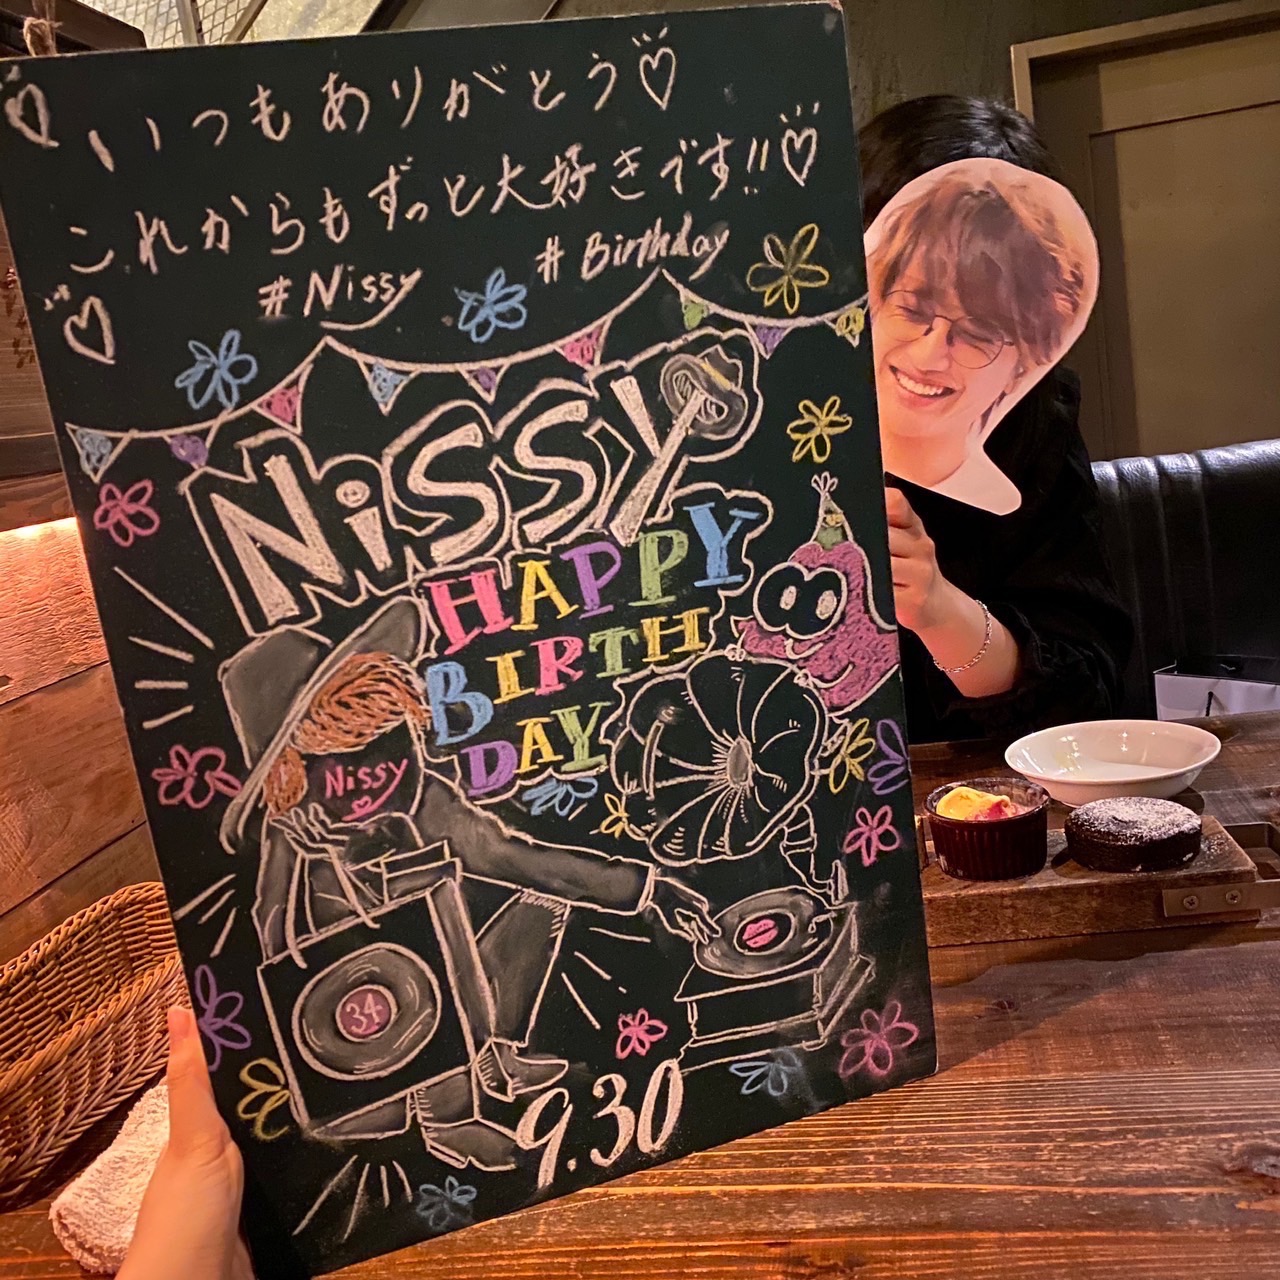 いつもありがとう♡
これからもずっと大好きです!!♡
#Nissy #Birthday
NiSSY
HAPPY
BIRTH
DAY
Nissy
34
9.30